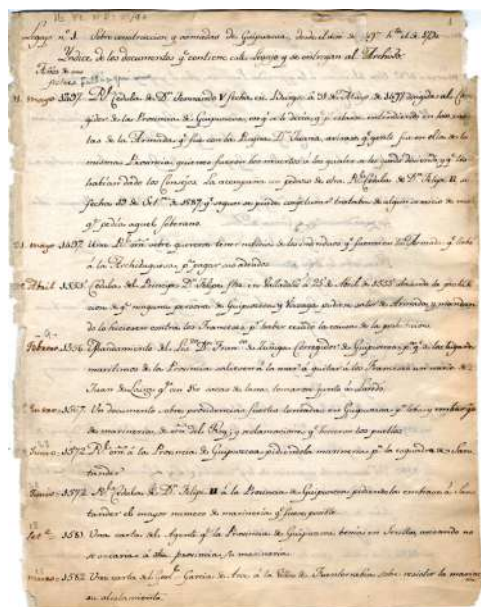 Legajo nº 1. Sobre construccion y armadas de Guipuzcoa, desde el año de 1497 hta el de 1590
Yndice de los documentos q. contiene este Legajo y se entregan al Archivo.
Años de
31. mayo 1497. Rl. Cédula de Dn. Fernando V fecha en á 31 de Mayo de 1497 dirigida al Corre-
gidor de la Provincia de Guipuzcoa, en q. le decia, q. estaba entendiendo en las cuen-
tas de la Armada q. fue con la Dª Juana, q. gente fue en ella de la
misma Provincia, quienes fueron los muertos á los quales se les puede dever, y q. les
habian dado los Consejos. La acompaña un pedazo de otra Rl. Cédula de Dn. Felipe II su
fecha 19 de Oct.re de 1587 q. segun se puede conjeturar trataba de algun servicio de mar
q. pedia aquel soberano.
31. mayo 1497. Una Rl. orn. sobre querer tener noticia de los individuos q. fueron en la Armada q. llebó
á la Archiduquesa, p. pagar sus sueldos.
Abril 1555. Cédula del Principe Dn. Felipe, fha. en Valladolid á 25 de Abril de 1555 alzando la prohibi-
cion de q. ninguna persona de Guipuzcoa y Vizcaya pudiese salir de Armada, y mandan-
do lo hicieran contra los Franceses, p. haber cesado la causa de la prohibicion.
Febrero 1556. Mandamiento del Lic.do Dn. Fran.co de Zuñiga Corregidor de Guipuzcoa, p. q. de los lugares
maritimos de la Provincia salieran á la mar á quitar á los Franceses un navio de
Juan de q. con sacas de lana, tomaron junto á
Enero. 1557. Un documento sobre providencias fuertes tomadas en Guipuzcoa, p. leba y embargo
de marineria, de orn. del Rey; y reclamaciones q. hicieron los pueblos.
Junio. 1572. Rl. orn. á la Provincia de Guipuzcoa pidiendola marineria p. la esquadra de San-
tander.
Junio. 1572. Rl. Cédula de Dn. Felipe II á la Provincia de Guipuzcoa pidiendola embiara á San-
tander el mayor numero de marineria q. fuese posible.
1581. Una carta del Agente q. la Provincia de Guipuzcoa tenia en Sevilla, avisando no
se enviaria á dha. provincia, su marineria.
marzo. 1582. Una carta del Garcia de Arce á la Villa de Fuenterrabia sobre resistir la marina
su alistamiento.